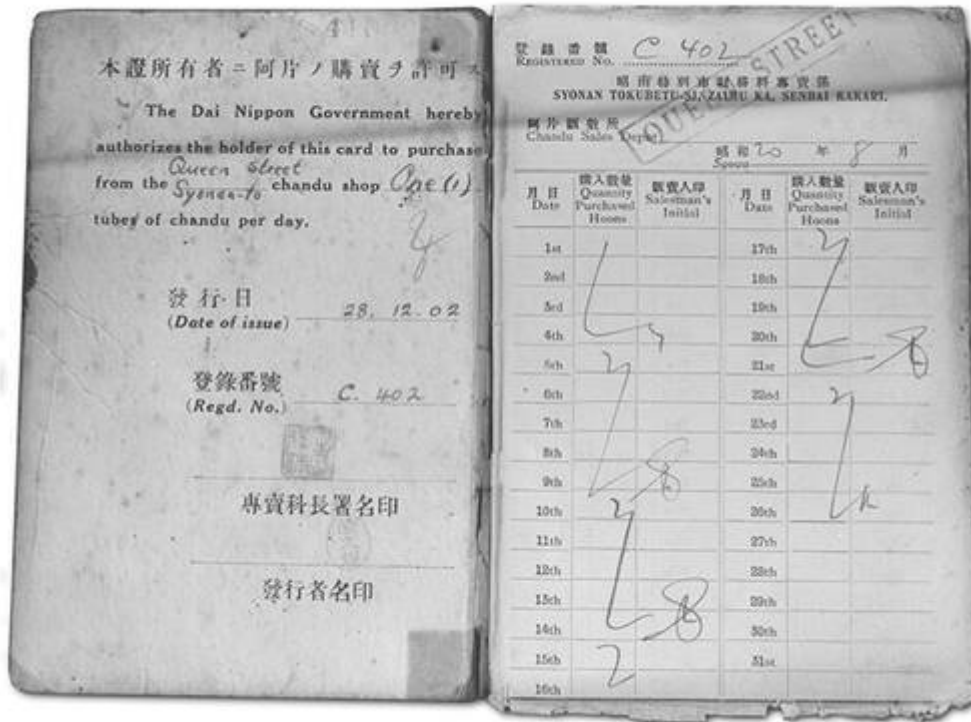 本證所有者ニ阿片ノ購賣ヲ許可ス
The Dai Nippon Government hereby
authorizes the holder of this card to purchase
Queen Street
from the Syonan-to chandu shop One (1)
tubes of chandu per day.
發行日
(Date of issue) 28. 12. 02
登錄番號
(Regd. No.) C. 402
專賣科長署名印
發行者名印
QUEEN STREET
登錄番號
REGISTERED No. C 402
昭南特別市財務科專賣係
SYONAN TOKUBETU-SI, ZAIMU KA, SENBAI KAKARI.
阿片販賣所
Chandu Sales Depot
昭和 20 年 8 月
Syowa
月日 購入數量 販賣人印 月日 購入數量 販賣人印
Date Quantity Purchased Hoons Salesman's Initial Date Quantity Purchased Hoons Salesman's Initial
1st 17th
2nd 18th
3rd 19th
4th 20th
5th 21st
6th 22nd
7th 23rd
8th 24th
9th 25th
10th 26th
11th 27th
12th 28th
13th 29th
14th 30th
15th 31st
16th